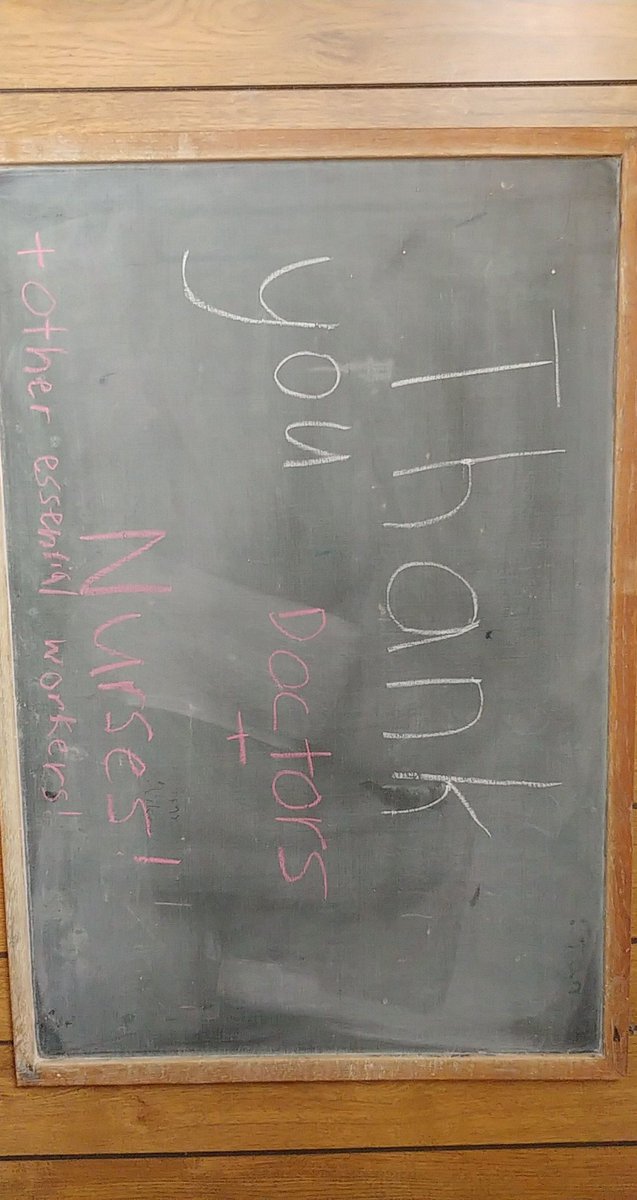 Thank
you
Doctors
+
Nurses!
+ Other essential workers!